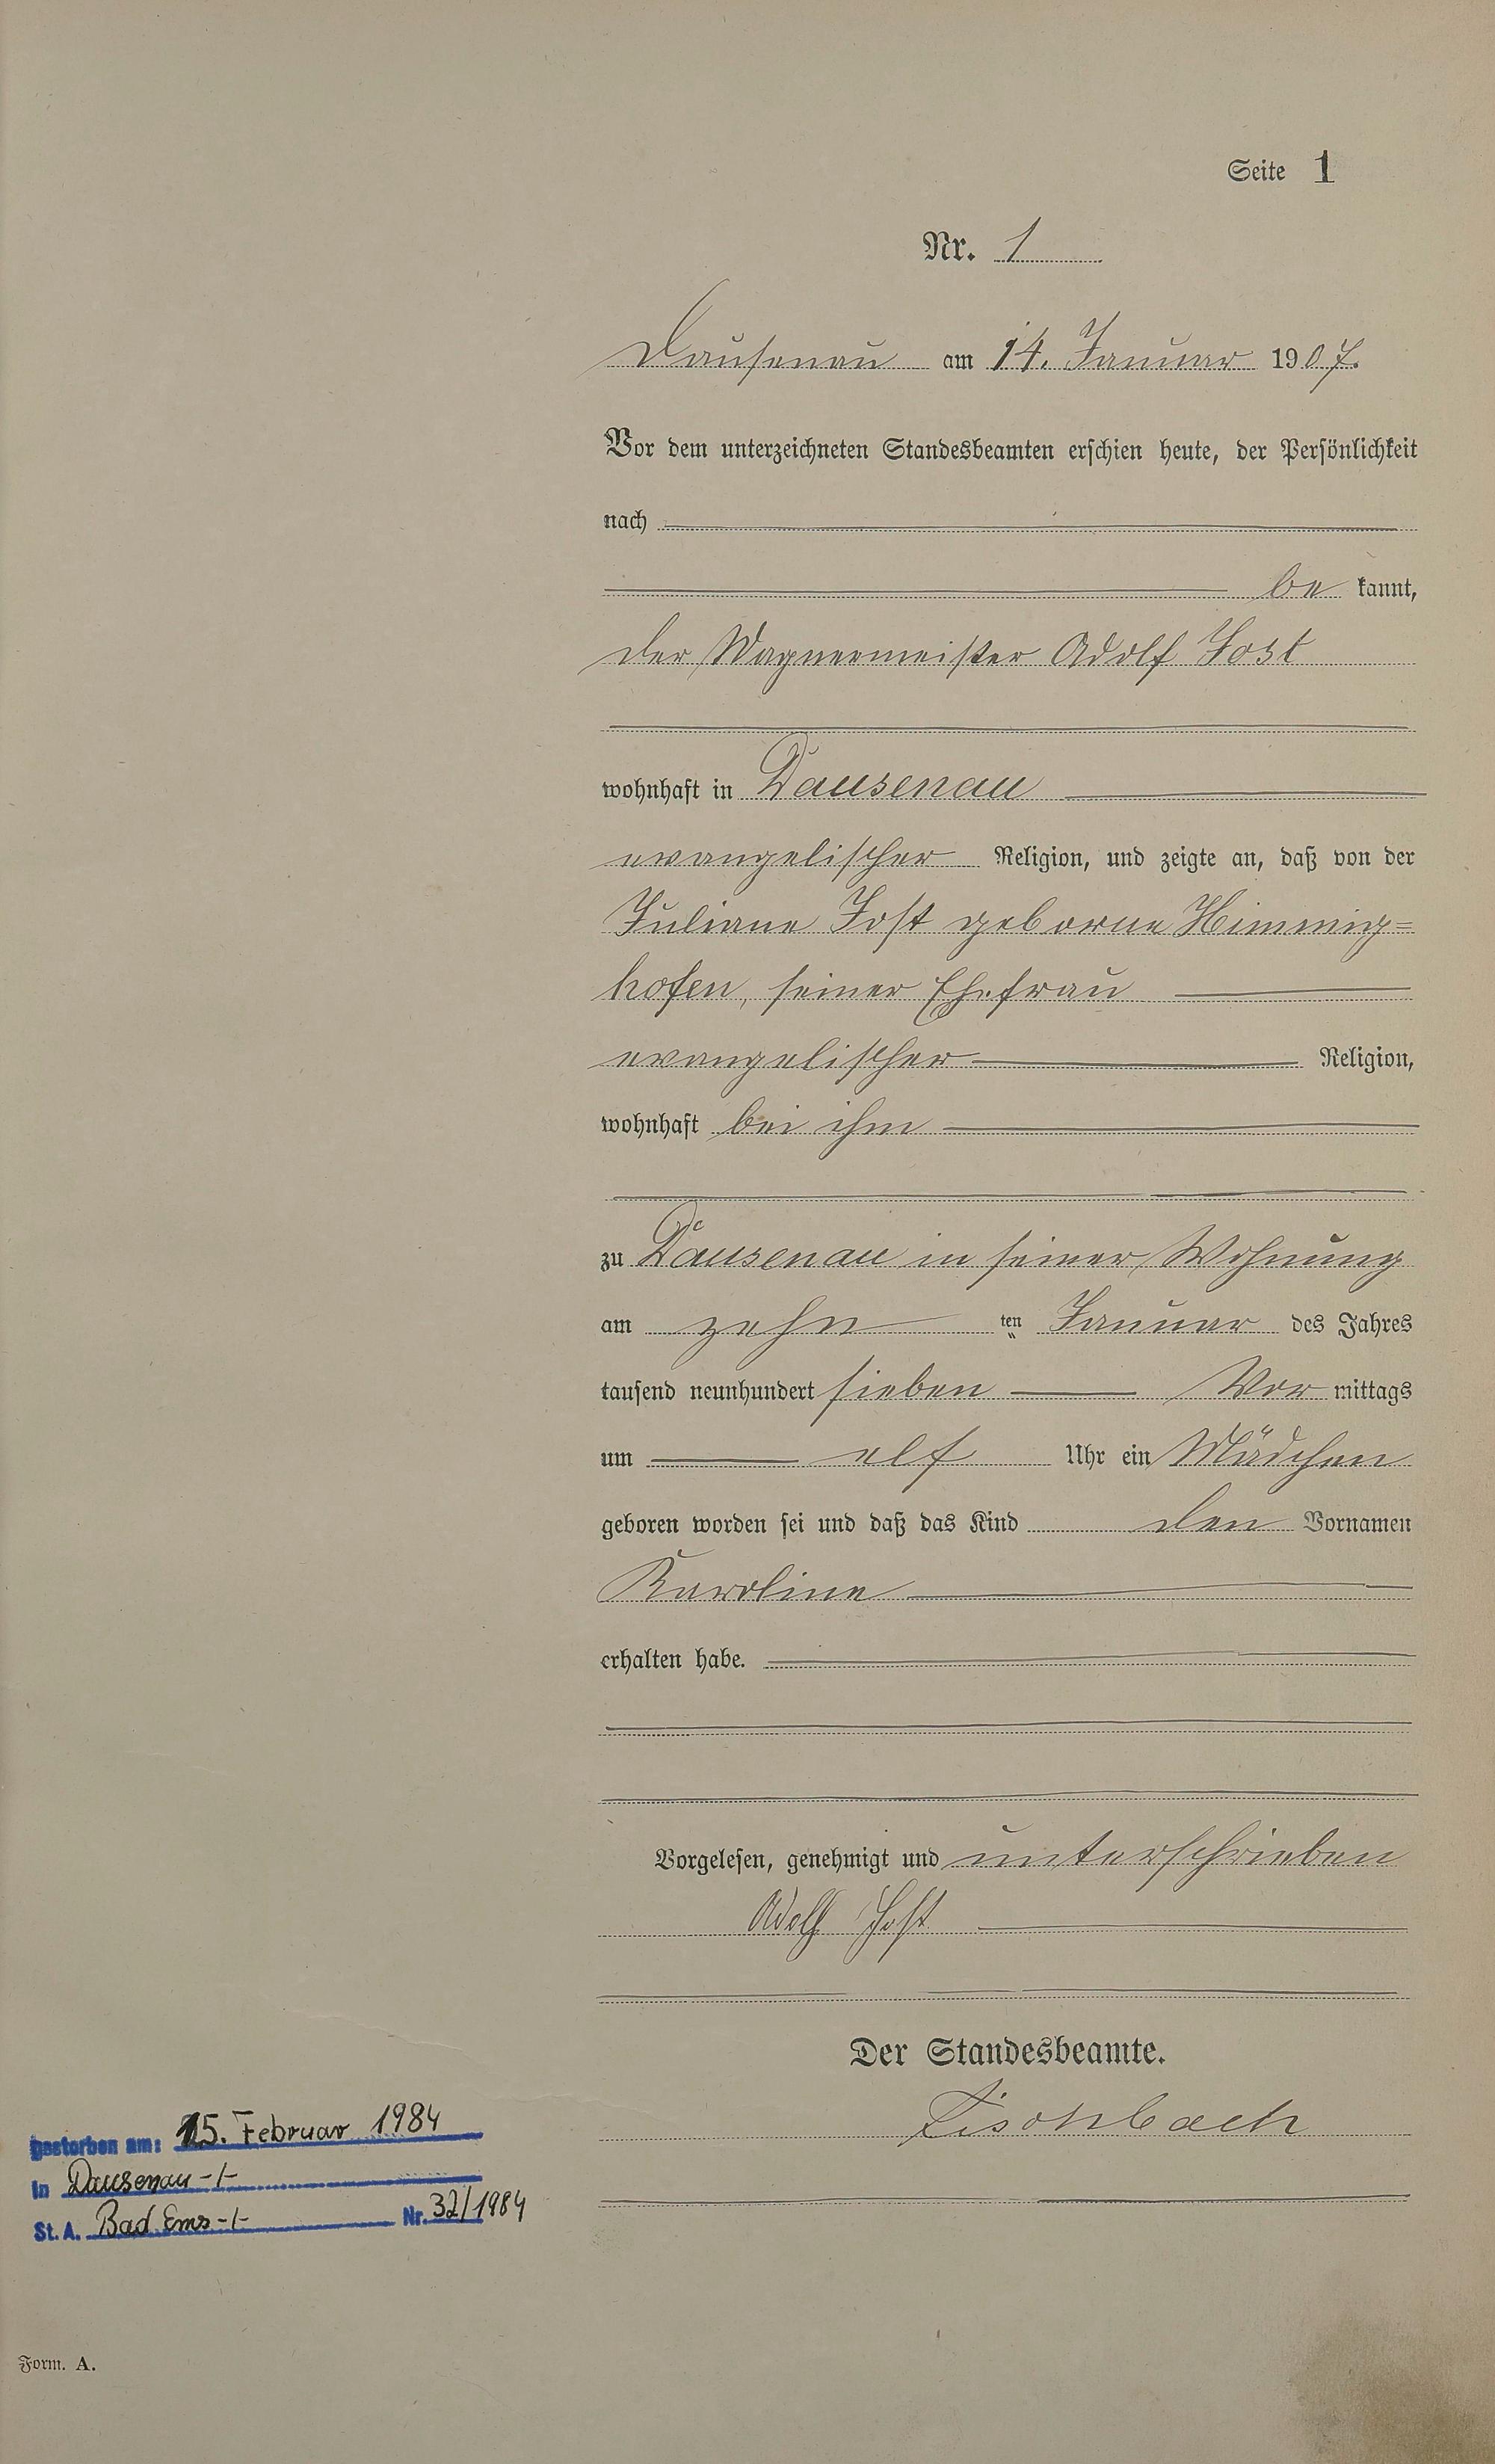 Seite 1
Nr. 1
Dausenau am 14. Januar 1907.
Vor dem unterzeichneten Standesbeamten erschien heute, der Persönlichkeit
nach
be kannt,
der Wagnermeister Adolf Jost
wohnhaft in Dausenau
evangelischer Religion, und zeigte an, daß von der
Juliane Jost geborne Himmig=
hofen, seiner Ehefrau
evangelischer Religion,
wohnhaft bei ihm
zu Dausenau in seiner Wohnung
am zehn ten Januar des Jahres
tausend neunhundert sieben Vor mittags
um elf Uhr ein Mädchen
geboren worden sei und daß das Kind den Vornamen
Karoline
erhalten habe.
Vorgelesen, genehmigt und unterschrieben
Adolf Jost
Der Standesbeamte.
Fischbach
gestorben am: 15. Februar 1984
in Dausenau -/-
St. A. Bad Ems -/- Nr. 32/1984
Form. A.